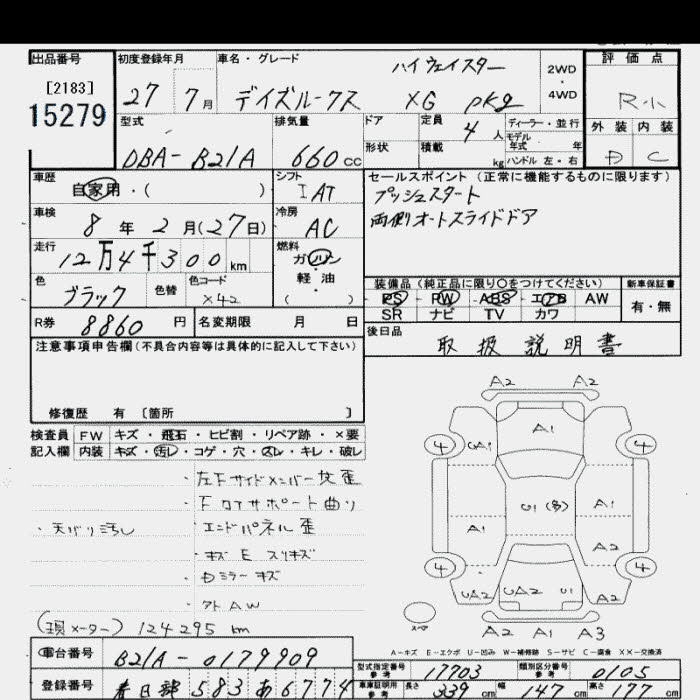 出品番号 初度登録年月 車名・グレード ハイウェイスター 2WD・4WD 評価点
[2183]
15279
27 7月 デイズルークス XG pkg R・小
型式 排気量 ドア 定員 4人 ディーラー・並行 外装 内装
モデル年式 年
DBA-B21A 660cc 形状 積載 kg ハンドル 左・右 D C
車歴 自家用・( ) シフト IAT セールスポイント(正常に機能するものに限ります)
プッシュスタート
車検 8年2月(27日) 冷房 AC 両側オートスライドドア
走行 12万4千300km 燃料 ガソリン・軽油 ( )
色 ブラック 色替 色コード X42
装備品(純正品に限り○をつけてください) 新車保証書
PS PW ABS エアB AW 有・無
SR ナビ TV カワ
R券 8860円 名変期限 月 日
後日品 取扱説明書
注意事項申告欄(不具合内容等は具体的に記入して下さい)
修復歴 有 [箇所 ]
検査員 FW キズ・飛石・ヒビ割・リペア跡・×要
記入欄 内装 キズ・汚レ・コゲ・穴・スレ・キレ・破レ
・左Fサイドメンバー 歪
・Fロアサポート曲り
・天バリ汚し ・エンドパネル歪
・キズ E スリキズ
・Dミラーキズ
・アトAW
(現メーター) 124295 km
A2 A2
A1
4 UA1 4
U1(多) A1
A1
A2
4 4
UA2 UA2 U1 A2
A2 A1 A3
A-キズ E-エクボ U-凹み W-補修跡 S-サビ C-腐食 XX-交換済
車台番号 B21A-0179909
型式指定番号 参考 17703 類別区分番号 参考 0105
登録番号 春日部 583 あ 6774
車庫証明用 参考 長さ 339cm 幅 147cm 高さ 177cm